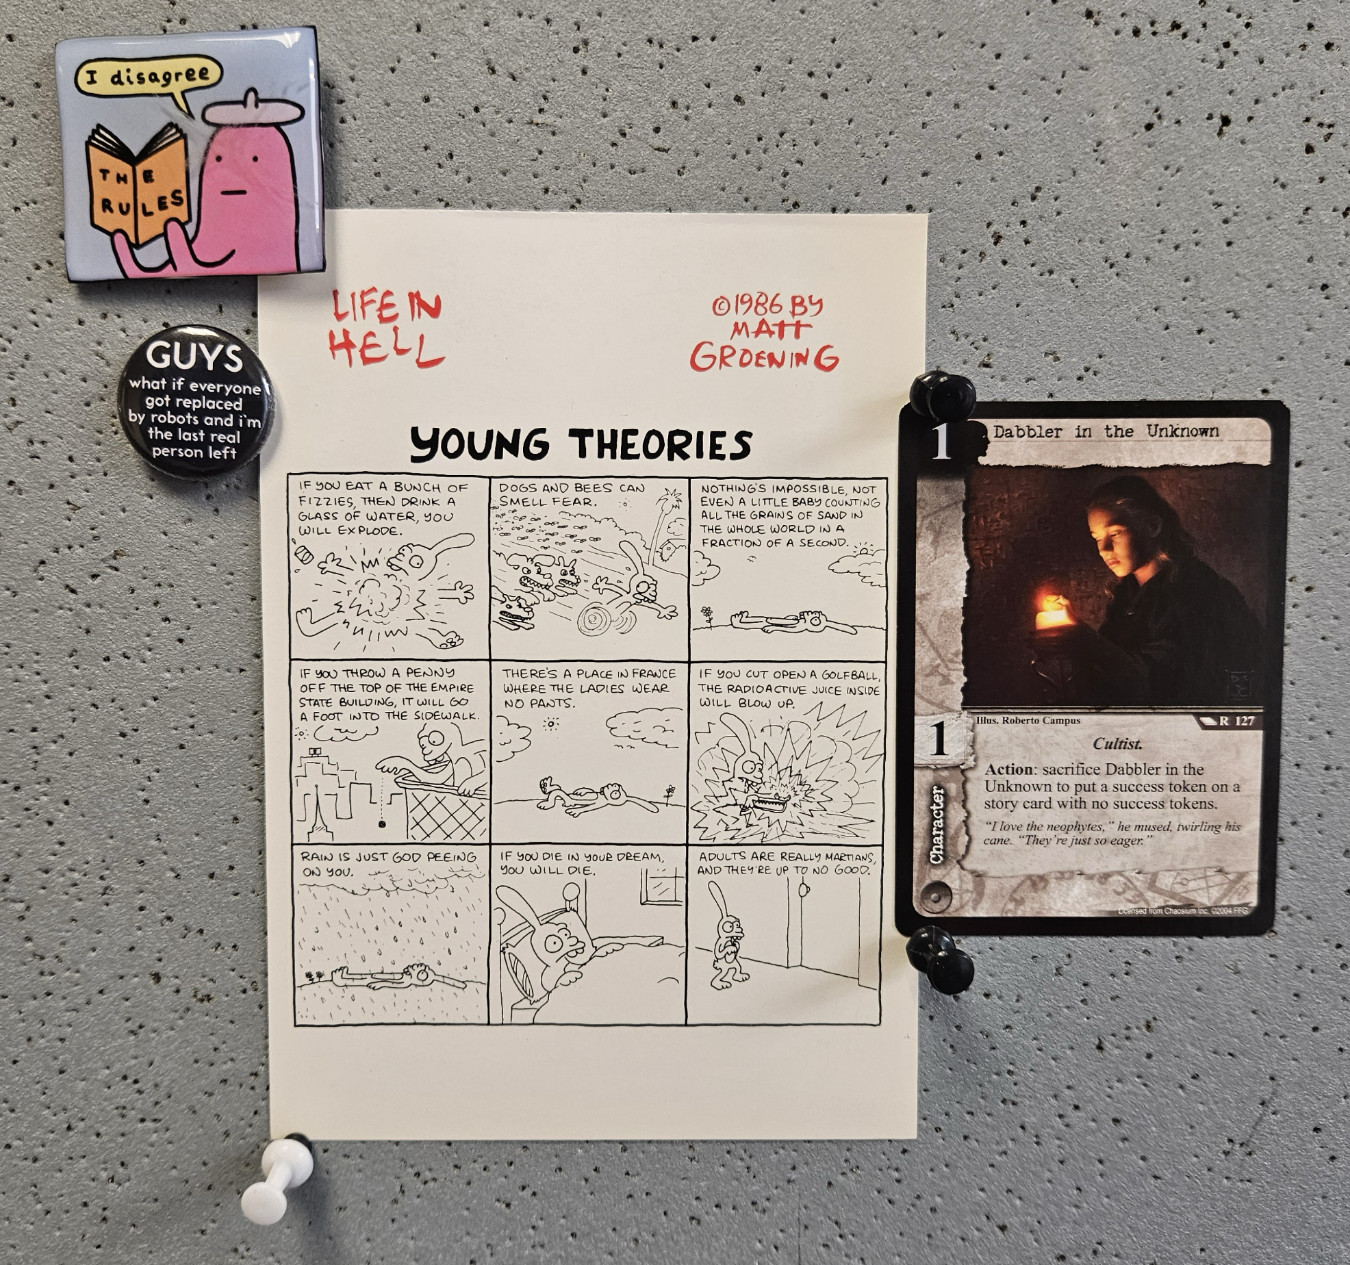 I disagree
THE
RULES
GUYS
what if everyone
got replaced
by robots and i'm
the last real
person left
LIFE IN
HELL
©1986 BY
MATT
GROENING
YOUNG THEORIES
IF YOU EAT A BUNCH OF
FIZZIES, THEN DRINK A
GLASS OF WATER, YOU
WILL EXPLODE.
DOGS AND BEES CAN
SMELL FEAR.
NOTHING'S IMPOSSIBLE, NOT
EVEN A LITTLE BABY COUNTING
ALL THE GRAINS OF SAND IN
THE WHOLE WORLD IN A
FRACTION OF A SECOND.
IF YOU THROW A PENNY
OFF THE TOP OF THE EMPIRE
STATE BUILDING, IT WILL GO
A FOOT INTO THE SIDEWALK.
THERE'S A PLACE IN FRANCE
WHERE THE LADIES WEAR
NO PANTS.
IF YOU CUT OPEN A GOLFBALL,
THE RADIOACTIVE JUICE INSIDE
WILL BLOW UP.
RAIN IS JUST GOD PEEING
ON YOU.
IF YOU DIE IN YOUR DREAM,
YOU WILL DIE.
ADULTS ARE REALLY MARTIANS,
AND THEY'RE UP TO NO GOOD.
1
Dabbler in the Unknown
Illus. Roberto Campus
R 127
1
Cultist.
Action: sacrifice Dabbler in the
Unknown to put a success token on a
story card with no success tokens.
"I love the neophytes," he mused, twirling his
cane. "They're just so eager."
Character
Licensed from Chaosium Inc. ©2004 FFG